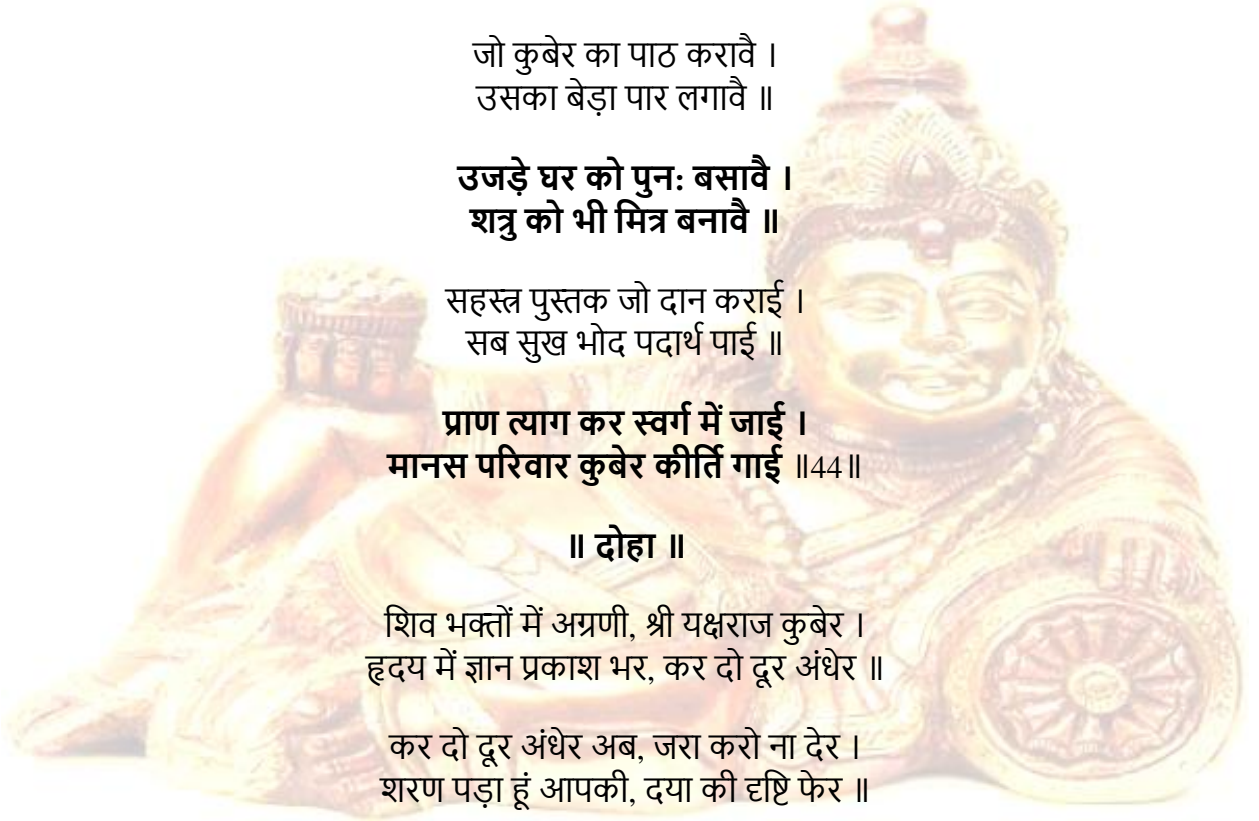 जो कुबेर का पाठ करावै ।
उसका बेड़ा पार लगावै ॥
उजड़े घर को पुन: बसावै ।
शत्रु को भी मित्र बनावै ॥
सहस्त्र पुस्तक जो दान कराई ।
सब सुख भोद पदार्थ पाई ॥
प्राण त्याग कर स्वर्ग में जाई ।
मानस परिवार कुबेर कीर्ति गाई ॥44॥
॥ दोहा ॥
शिव भक्तों में अग्रणी, श्री यक्षराज कुबेर ।
हृदय में ज्ञान प्रकाश भर, कर दो दूर अंधेर ॥
कर दो दूर अंधेर अब, जरा करो ना देर ।
शरण पड़ा हूं आपकी, दया की दृष्टि फेर ॥